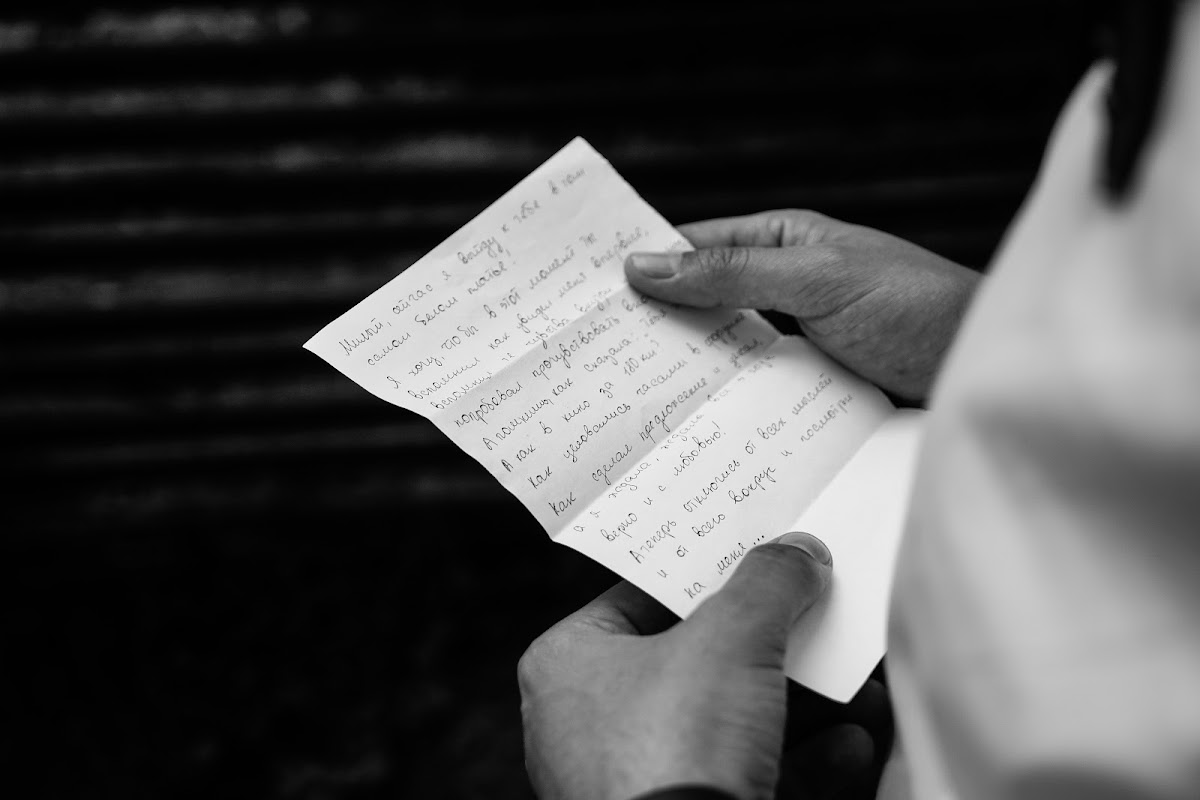 Милый, сейчас я выйду к тебе в том
самом белом платье!
Я хочу, чтобы в этот момент ты
вспомнил как увидел меня впервые,
вспомнил те чувства
попробовал прочувствовать
А помнишь, как сказала: "тебя
А как в кино за 180 км?
Как целовались часами в
Как сделал предложение и уехал,
а я ждала, ждала
верно и с любовью!
А теперь отключись от всех мыслей
и от всего вокруг и посмотри
на меня...